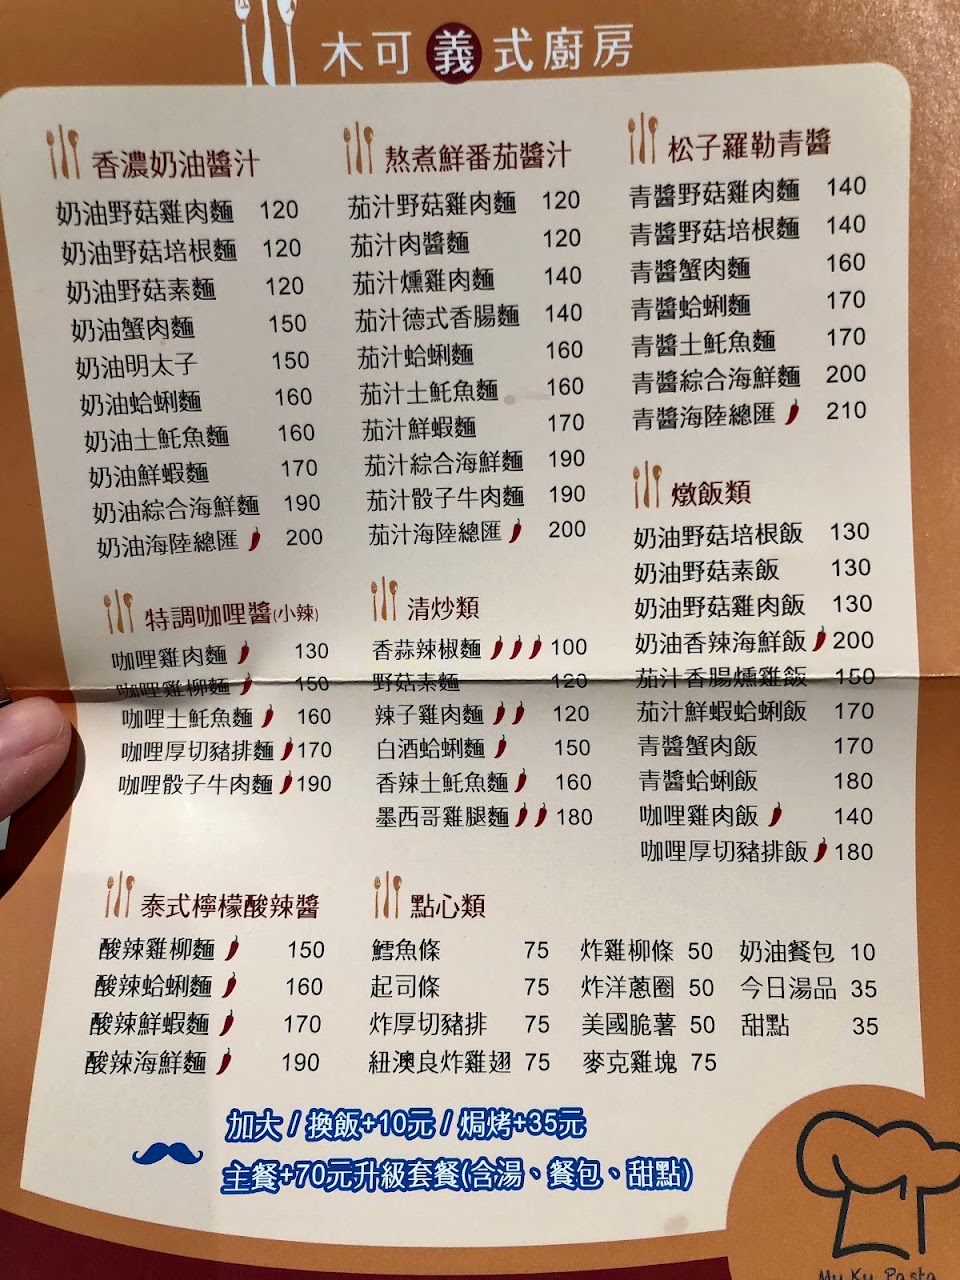 木可義式廚房
香濃奶油醬汁
奶油野菇雞肉麵 120
奶油野菇培根麵 120
奶油野菇素麵 120
奶油蟹肉麵 150
奶油明太子 150
奶油蛤蜊麵 160
奶油土魠魚麵 160
奶油鮮蝦麵 170
奶油綜合海鮮麵 190
奶油海陸總匯 200
熬煮鮮番茄醬汁
茄汁野菇雞肉麵 120
茄汁肉醬麵 120
茄汁燻雞肉麵 140
茄汁德式香腸麵 140
茄汁蛤蜊麵 160
茄汁土魠魚麵 160
茄汁鮮蝦麵 170
茄汁綜合海鮮麵 190
茄汁骰子牛肉麵 190
茄汁海陸總匯 200
松子羅勒青醬
青醬野菇雞肉麵 140
青醬野菇培根麵 140
青醬蟹肉麵 160
青醬蛤蜊麵 170
青醬土魠魚麵 170
青醬綜合海鮮麵 200
青醬海陸總匯 210
特調咖哩醬(小辣)
咖哩雞肉麵 130
咖哩雞柳麵 150
咖哩土魠魚麵 160
咖哩厚切豬排麵 170
咖哩骰子牛肉麵 190
清炒類
香蒜辣椒麵 100
野菇素麵 120
辣子雞肉麵 120
白酒蛤蜊麵 150
香辣土魠魚麵 160
墨西哥雞腿麵 180
燉飯類
奶油野菇培根飯 130
奶油野菇素飯 130
奶油野菇雞肉飯 130
奶油香辣海鮮飯 200
茄汁香腸燻雞飯 150
茄汁鮮蝦蛤蜊飯 170
青醬蟹肉飯 170
青醬蛤蜊飯 180
咖哩雞肉飯 140
咖哩厚切豬排飯 180
泰式檸檬酸辣醬
酸辣雞柳麵 150
酸辣蛤蜊麵 160
酸辣鮮蝦麵 170
酸辣海鮮麵 190
點心類
鱈魚條 75 炸雞柳條 50 奶油餐包 10
起司條 75 炸洋蔥圈 50 今日湯品 35
炸厚切豬排 75 美國脆薯 50 甜點 35
紐澳良炸雞翅 75 麥克雞塊 75
加大 / 換飯+10元 / 焗烤+35元
主餐+70元升級套餐(含湯、餐包、甜點)
Mu Ku Pasta